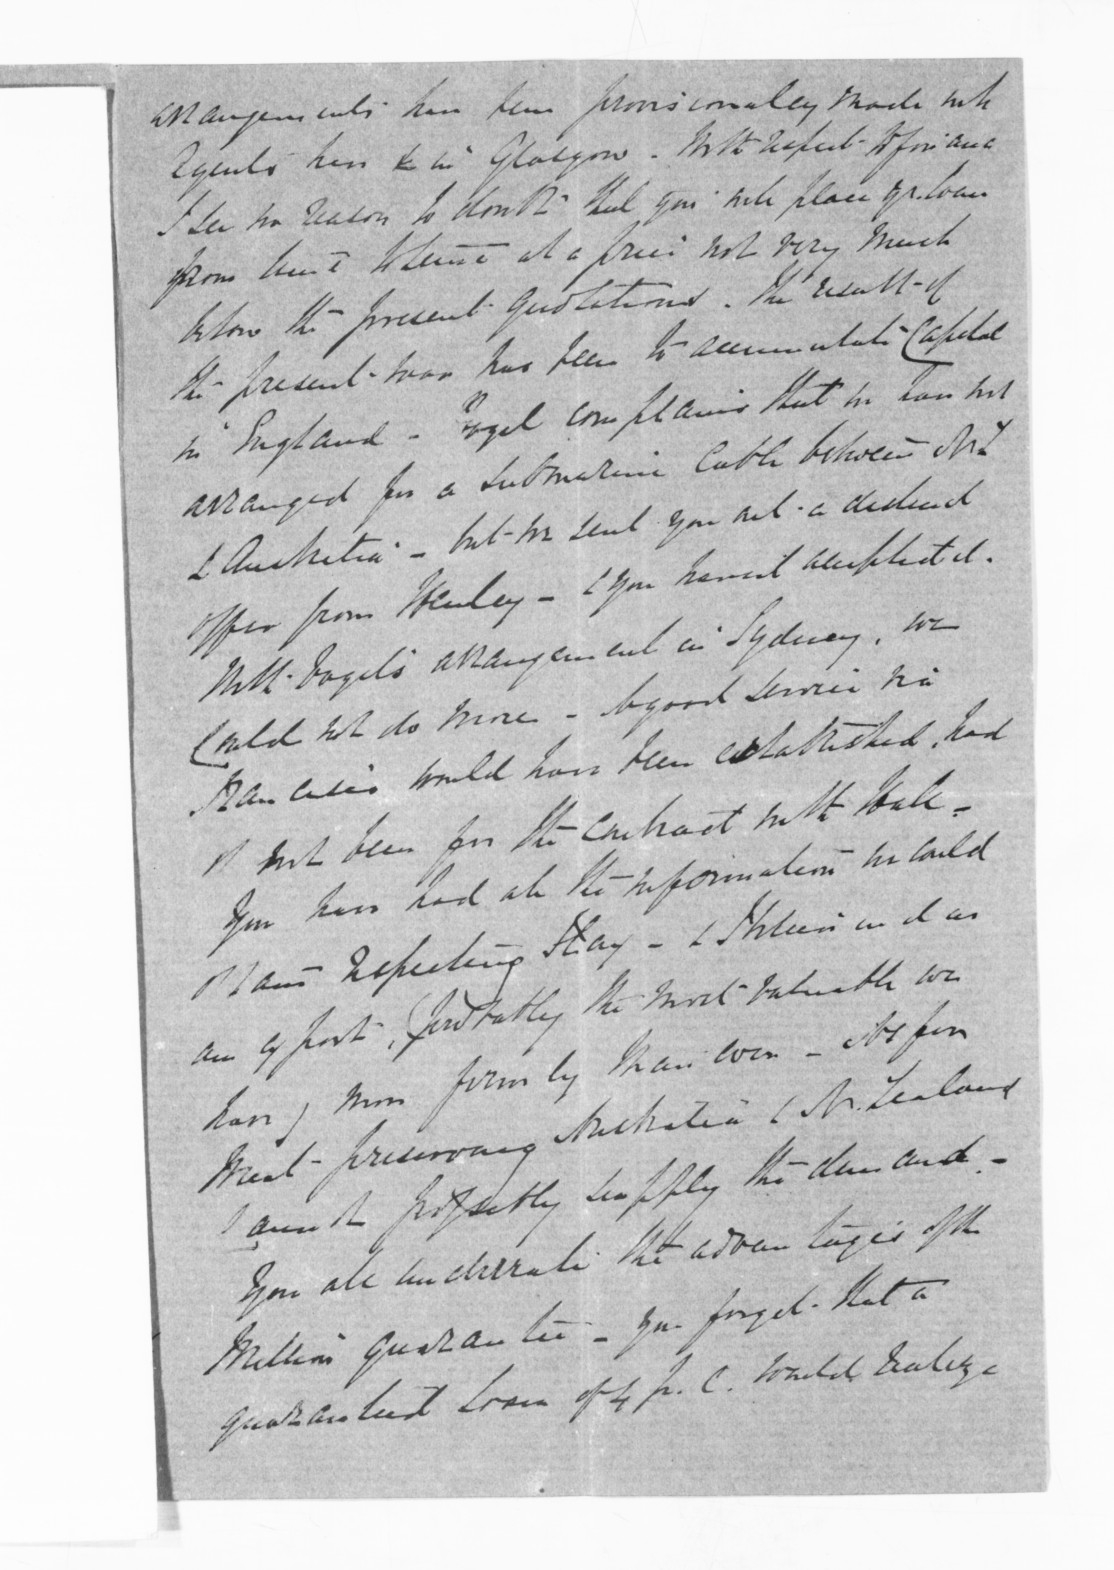 arrangements have been provisionally made with
agents here & in Glasgow. With respect to finance
I see no reason to doubt that you will place yr. loan
from time to time at a price not very much
below the present quotations. The result of
the present war has been to accumulate Capital
in England – Vogel complains that we have not
arranged for a submarine Cable between N.Z
& Australia – but we sent you out a decided
offer from Henley – & you haven't accepted it.
With Vogel's arrangement in Sydney, we
Could not do more – A good service via
Francisco would have been established, had
it not been for the Contract with Hall –
You have had all the information we could
obtain respecting Flax – & it is in and as
an export, (probably the most valuable we
have) more firmly than ever – As for
Meat preserving Australia & N. Zealand
cannot possibly supply the demand. –
You all underrate the advantages of the
Million guarantee – You forget that a
guaranteed Loan of 4 p. C. would realize